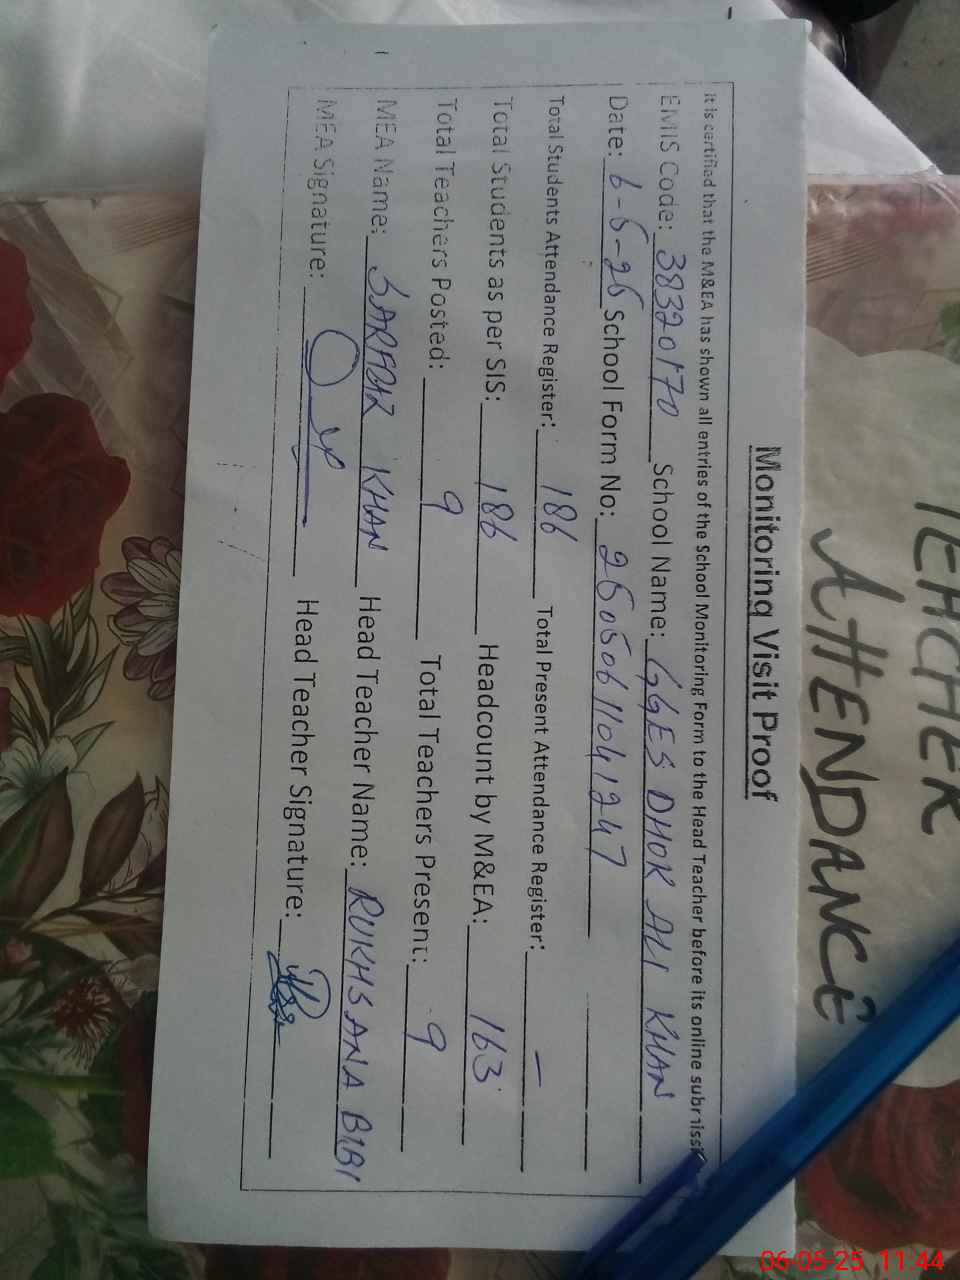 TEACHER
ATTENDANCE
Monitoring Visit Proof
It is certified that the M&EA has shown all entries of the School Monitoring Form to the Head Teacher before its online submissi
EMIS Code: 38320170 School Name: GGES DHOK ALI KHAN
Date: 6-5-25 School Form No: 25050611041247
Total Students Attendance Register: 186 Total Present Attendance Register: —
Total Students as per SIS: 186 Headcount by M&EA: 163
Total Teachers Posted: 9 Total Teachers Present: 9
MEA Name: SARFRAZ KHAN Head Teacher Name: RUKHSANA BIBI
MEA Signature: Head Teacher Signature:
06-05-25 11:44